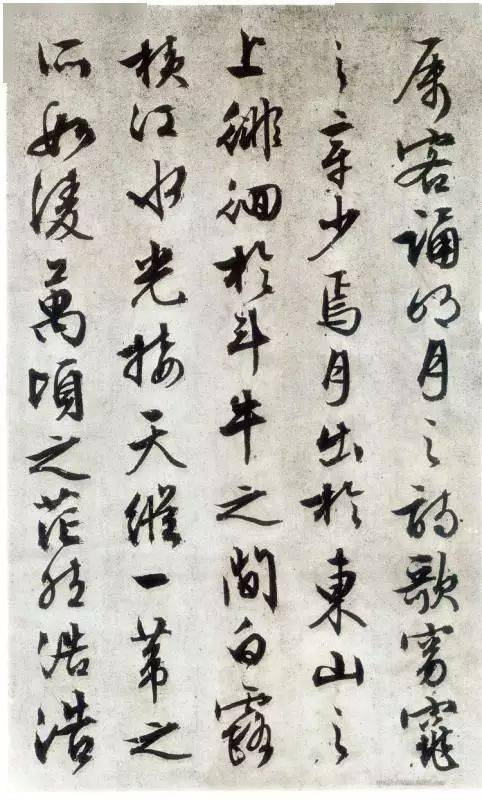 属客诵明月之詩歌窈窕
之章少焉月出於東山之
上徘徊於斗牛之間白露
横江水光接天縦一葦之
所如凌萬頃之茫然浩浩